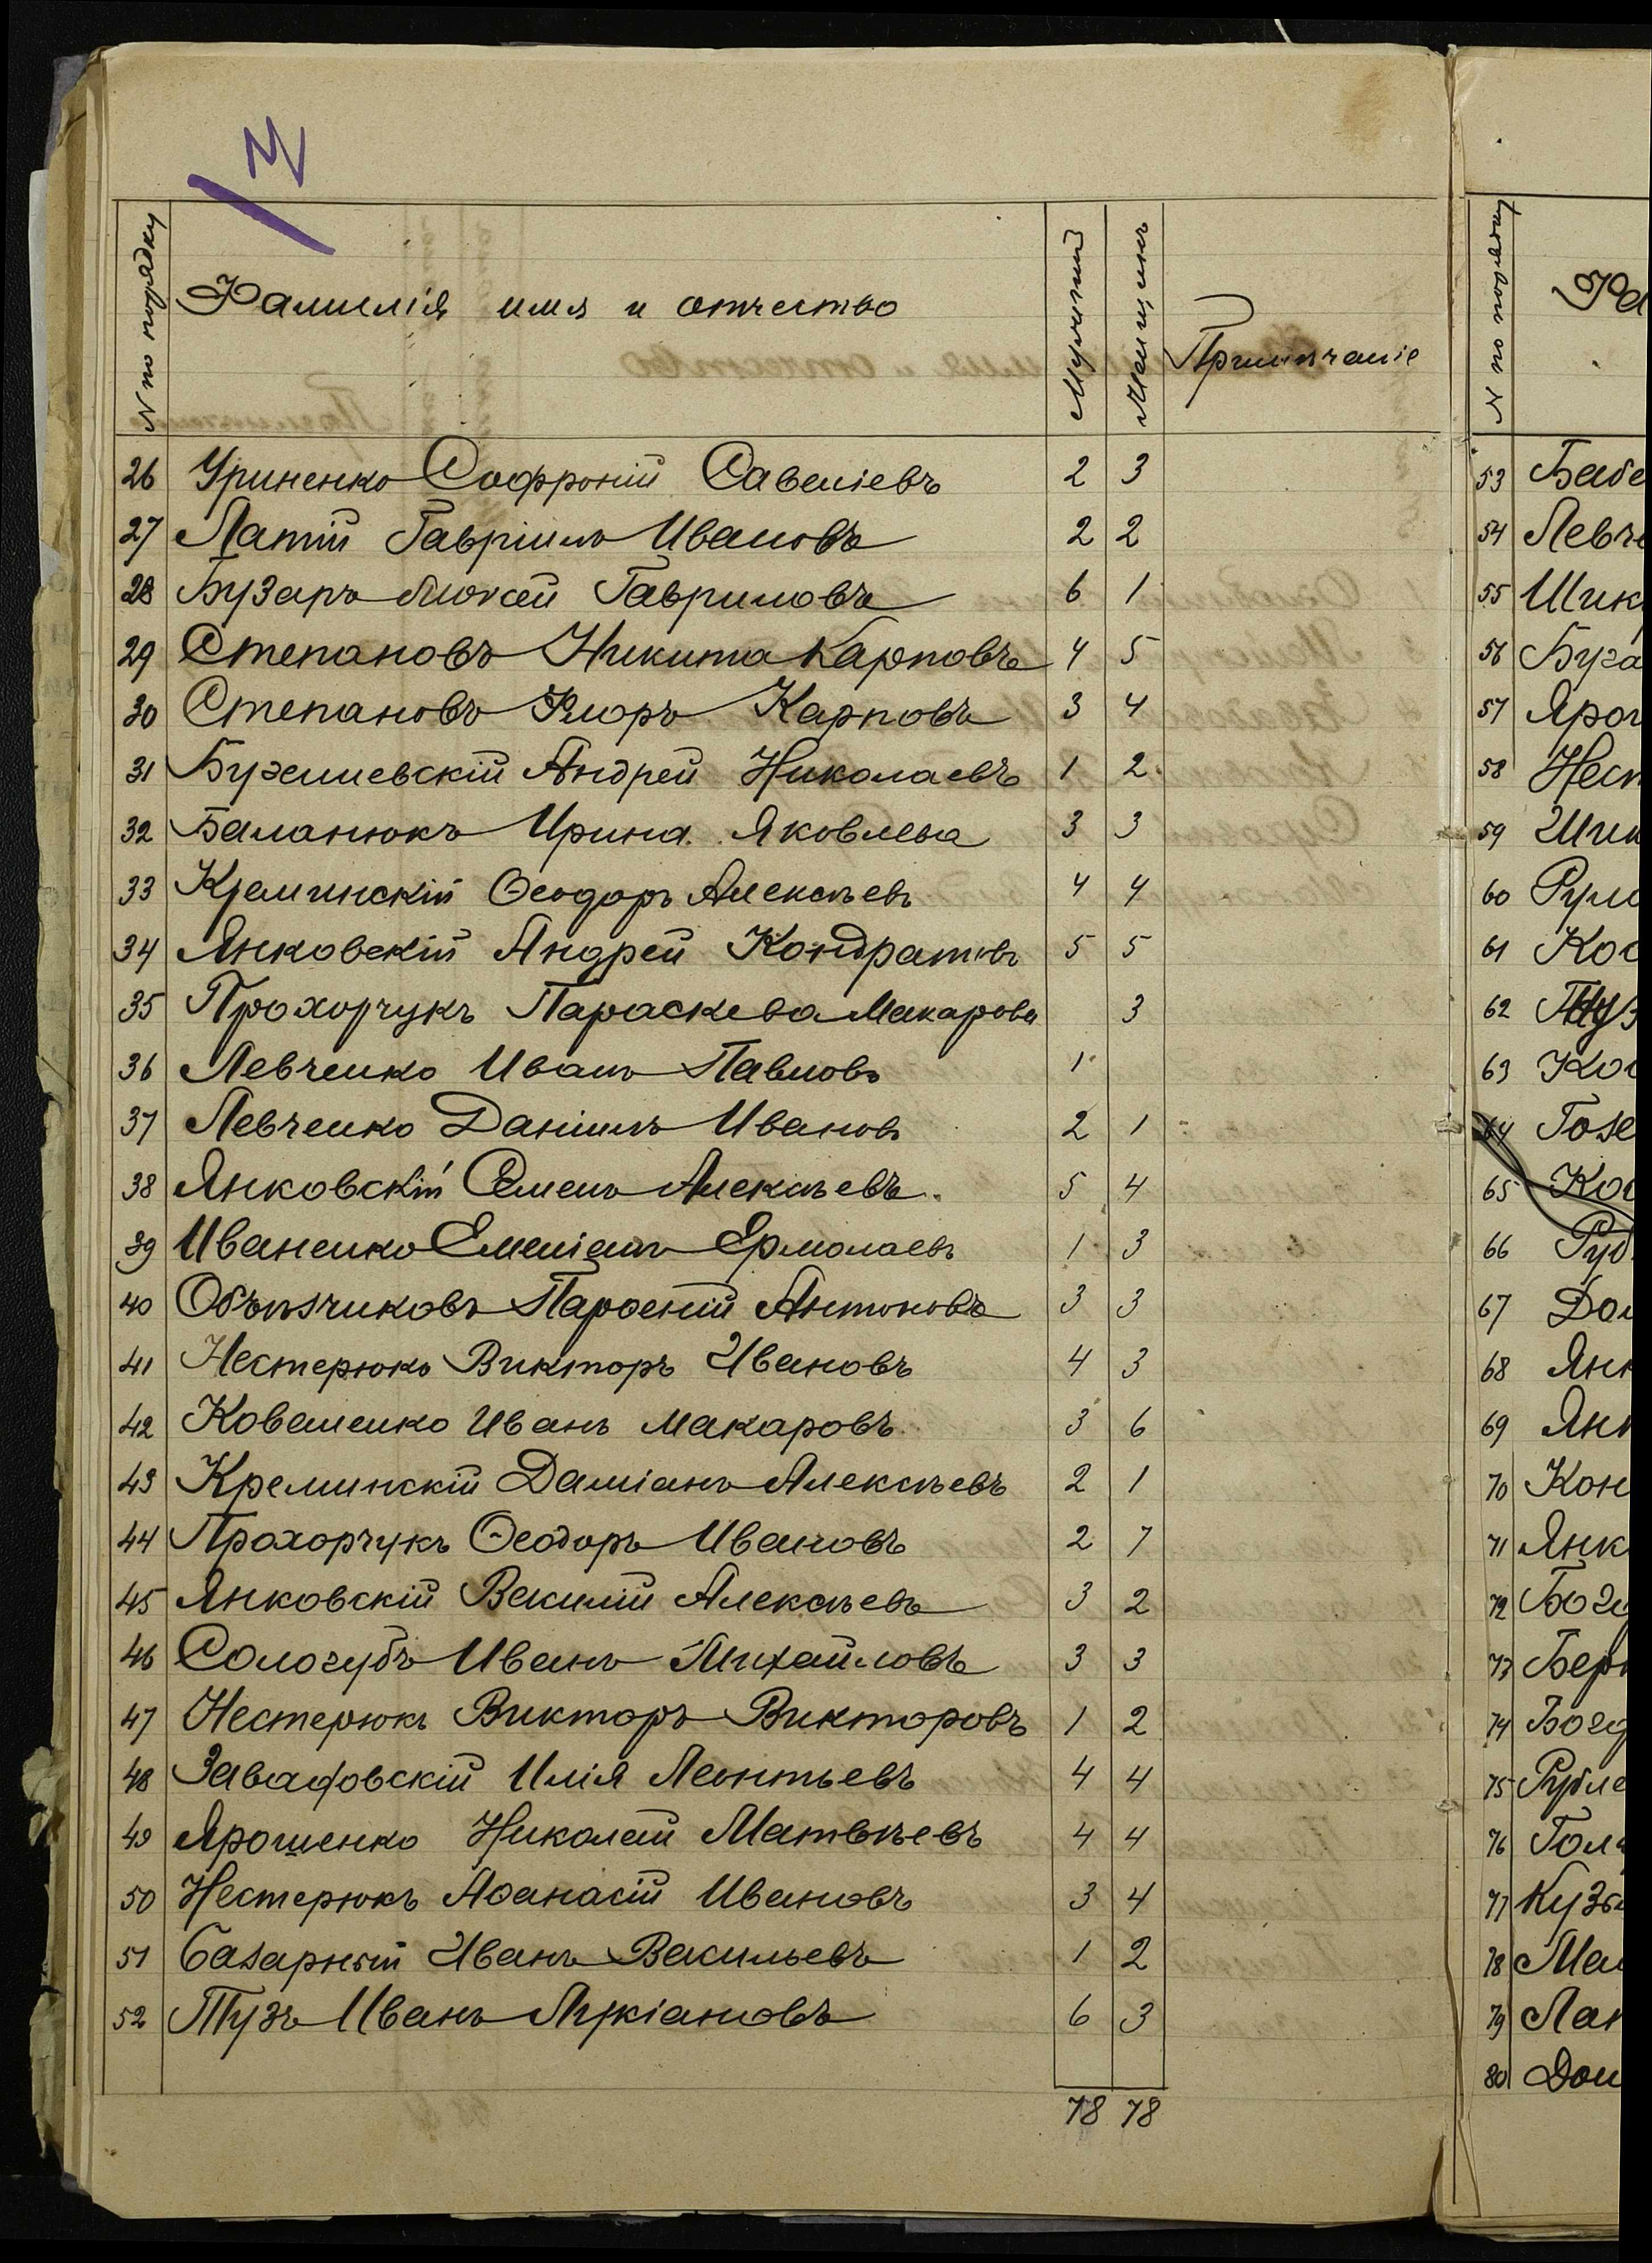 № по порядку Фамилія имя и отчество Мужчинъ Женщинъ Примѣчаніе
26 Уриненко Софроній Савеліевъ 2 3
27 Латій Гавріилъ Ивановъ 2 2
28 Бузаръ Алексѣй Гавриловъ 6 1
29 Степановъ Никита Карповъ 4 5
30 Степановъ Флоръ Карповъ 3 4
31 Андрей Николаевъ 1 2
32 Баланюкъ Ирина Яковлева 3 3
33 Креминскій Ѳеодоръ Алексѣевъ 4 4
34 Янковскій Андрей Кондратовъ 5 5
35 Прохорчукъ Параскева Макарова 3
36 Левченко Иванъ Павловъ 1
37 Левченко Даніилъ Ивановъ 2 1
38 Янковскій Семенъ Алексѣевъ 5 4
39 Иваненко Емеліанъ Ермолаевъ 1 3
40 Объѣзчиковъ Парѳеній Антоновъ 3 3
41 Нестерюкъ Викторъ Ивановъ 4 3
42 Коваленко Иванъ Макаровъ 3 6
43 Креминскій Даміанъ Алексѣевъ 2 1
44 Прохорчукъ Ѳеодоръ Ивановъ 2 7
45 Янковскій Василій Алексѣевъ 3 2
46 Сологубъ Иванъ Михайловъ 3 3
47 Нестерюкъ Викторъ Викторовъ 1 2
48 Завадовскій Илія Леонтьевъ 4 4
49 Ярошенко Николай Матвѣевъ 4 4
50 Нестерюкъ Аѳанасій Ивановъ 3 4
51 Базарный Иванъ Васильевъ 1 2
52 Тузъ Иванъ Лукіановъ 6 3
78 78
№ по порядку Фа
53 Бабе
54 Левче
55 Шик
56 Буга
57 Яро
58 Нест
59 Шик
60
61 Кос
62
63 Кос
64
65 Ко
66 Руд
67
68 Янк
69 Янк
70 Кон
71 Янк
72 Бог
73 Бер
74 Бог
75 Рубле
76 Гол
77 Кузь
78
79 Лан
80